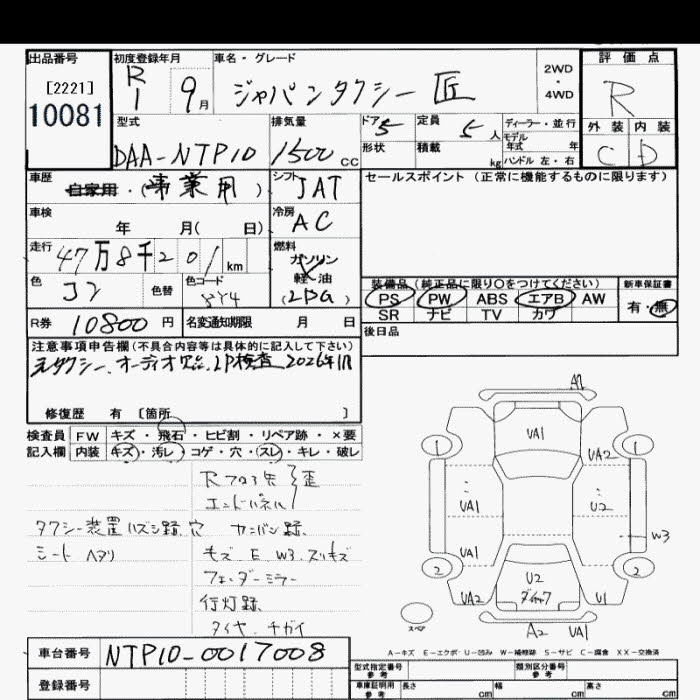 出品番号
[2221]
10081
初度登録年月
R1 9月
車名・グレード
ジャパンタクシー 匠
2WD
・
4WD
評価点
R
外装 内装
C D
型式
DAA-NTP10
排気量
1500 cc
ドア 5
定員 5人
形状
積載 kg
ディーラー・並行
モデル年式 年
ハンドル 左・右
車歴
自家用・(事業用)
シフト JAT
セールスポイント (正常に機能するものに限ります)
車検 年 月( 日)
冷房 AC
走行 47万8千201km
燃料
ガソリン
軽油
(LPG)
色 コン
色替
色コード 8Y4
装備品(純正品に限り○をつけてください)
PS PW ABS エアB AW
SR ナビ TV カワ
新車保証書
有・無
R券 10800円
名変通知期限 月 日
後日品
注意事項申告欄(不具合内容等は具体的に記入して下さい)
元タクシー、オーディオ欠品、LP検査 2026年1月
修復歴 有 [箇所 ]
検査員 FW キズ・飛石・ヒビ割・リペア跡・×要
記入欄 内装 キズ・汚レ・コゲ・穴・スレ・キレ・破レ
歪
エンドパネル
タクシー装置ハズシ跡、穴
カンバン跡
シート ヘタリ
モズ E W3 スリキズ
フェンダーミラー
行灯跡
タイヤ チガイ
A1
UA1
1
1
UA2
UA1
U2
W3
UA1
2
2
U2
ダイヤフ
UA2
U1
スペア
A2 UA1
A-キズ E-エクボ U-凹み W-補修跡 S-サビ C-腐食 XX-交換済
車台番号 NTP10-0017008
登録番号
型式指定番号 参考
類別区分番号 参考
車庫証明用 参考
長さ cm
幅 cm
高さ cm